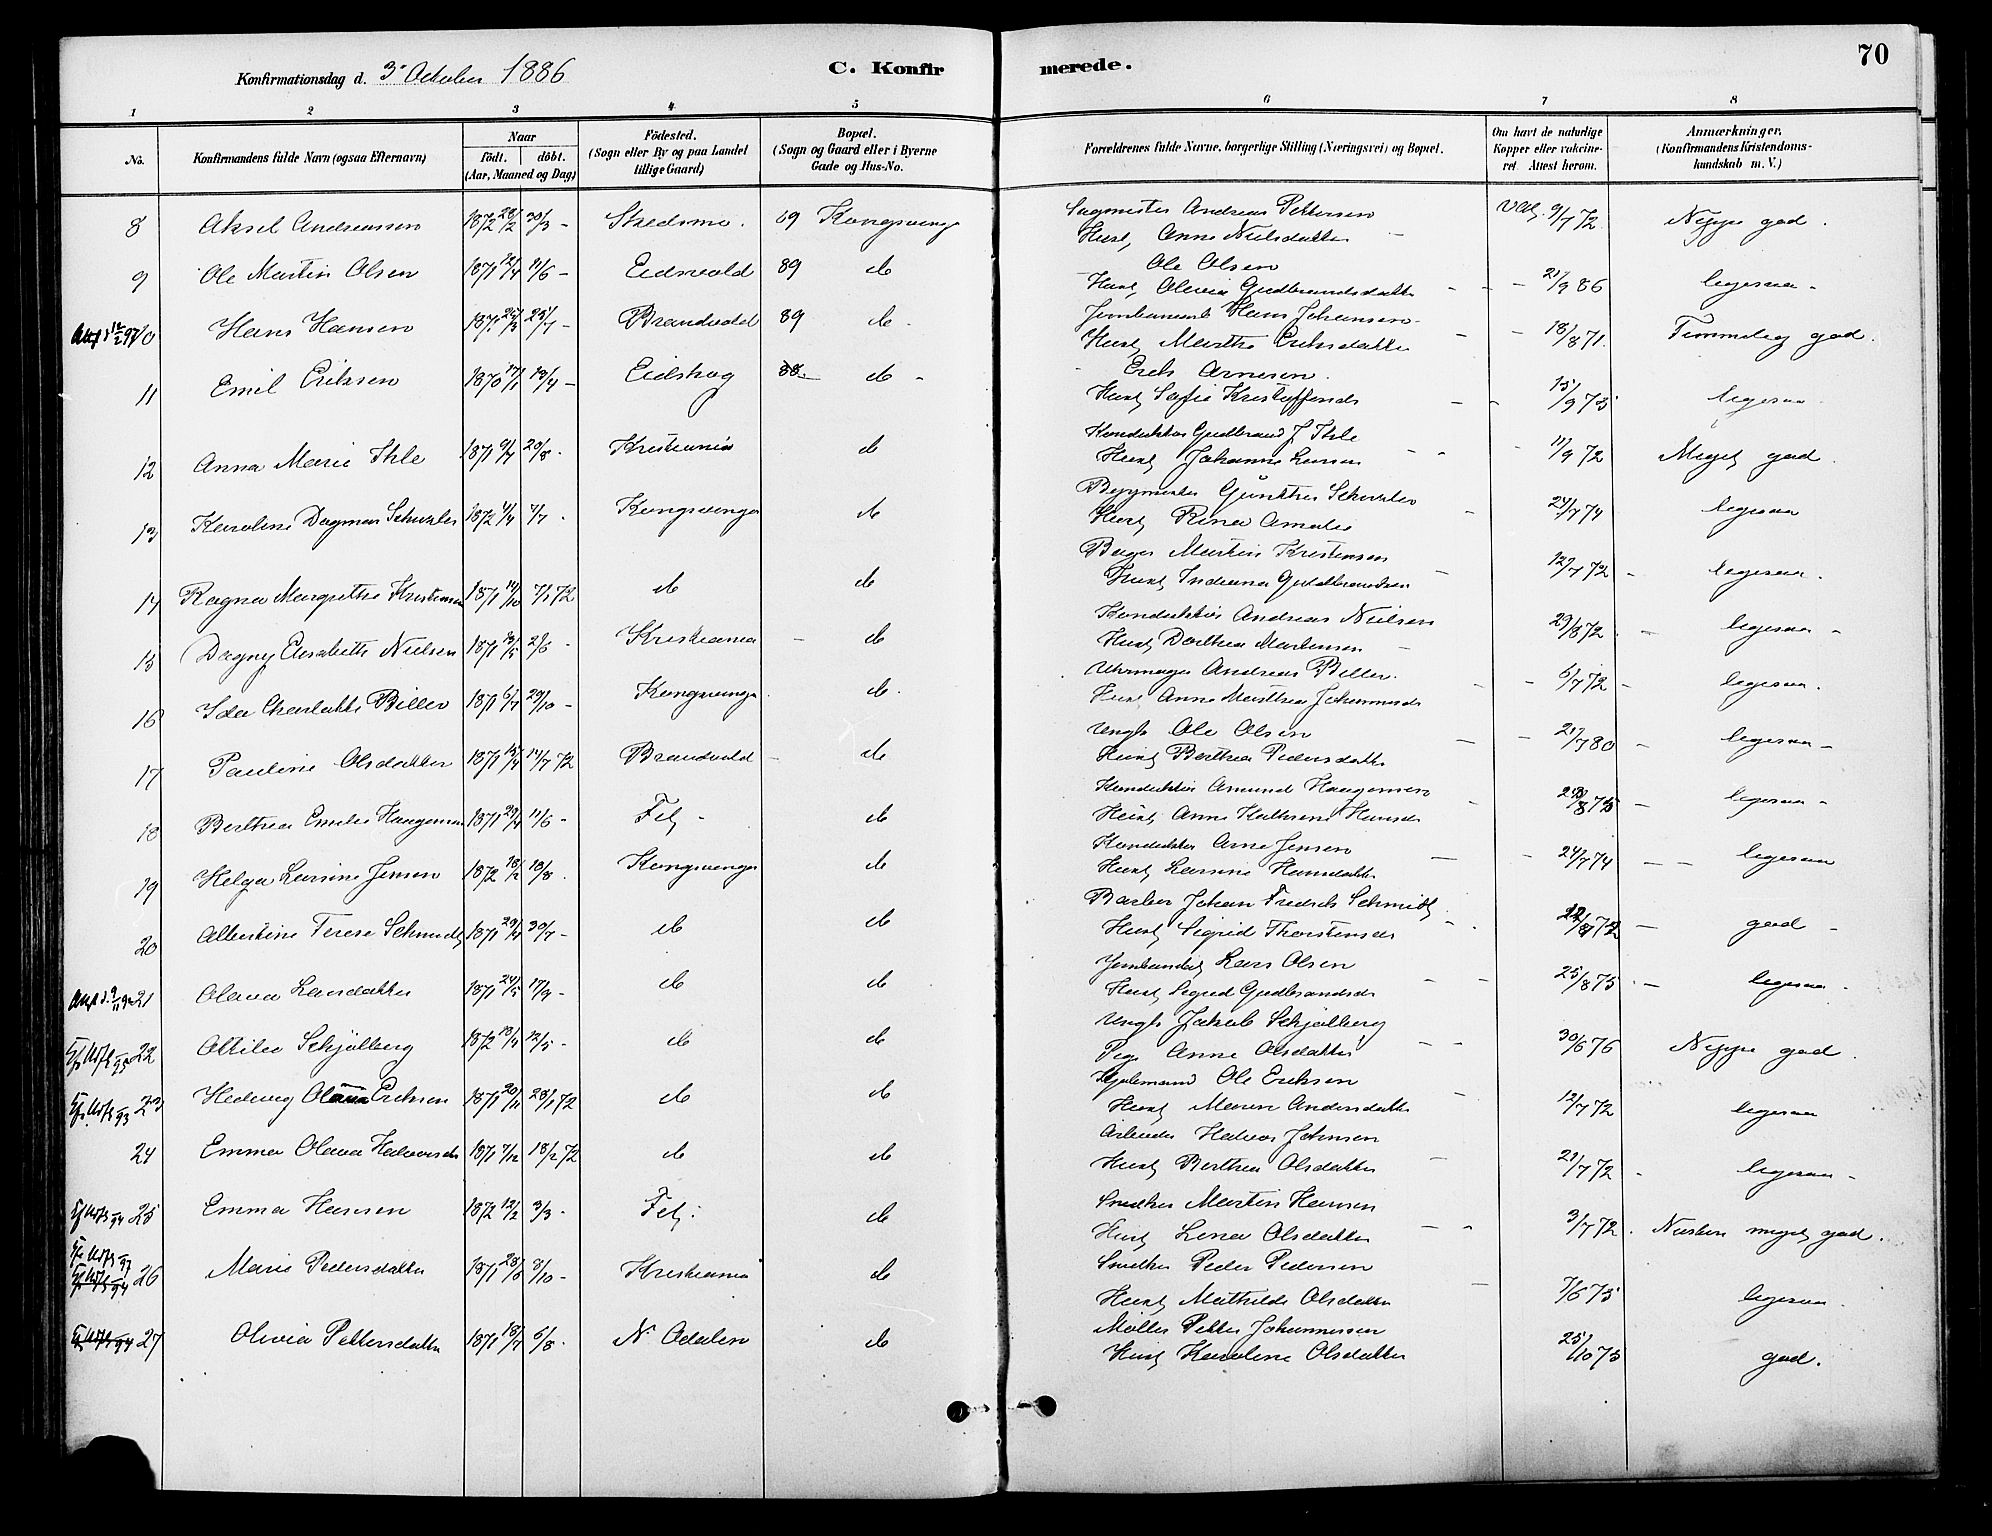 70
Konfirmationsdag d. 3' October 1886
C. Konfir merede.
1 2 3 4 5 6 7 8
No. Konfirmandens fulde Navn (ogsaa Efternavn) Naar født. døbt. (Aar, Maaned og Dag) Födested. (Sogn eller By og paa Landet tillige Gaard) Bopæl. (Sogn og Gaard eller i Byerne Gade og Hus-No. Forældrenes fulde Navne, borgerlige Stilling (Næringsvei) og Bopæl. Om havt de naturlige Kopper eller vakcineret Attest herom. Anmærkninger. (Konfirmandens Kristendomskundskab m. V.)
8 Aksel Andreassen 1872 28/2 30/3 - Skedsmo. 69 Kongsvinger Sagmester Andreas Pettersen Vacc. 9/7 72 Neppe god.
Hust. Anne Nielsdatter
9 Ole Martin Olsen 1871 12/4 11/6 - Eidsvold 89 do Ole Olsen 21/9 86 ligesaa -
Hust. Olevia Gudbrandsdatter
10 Hans Hansen 1871 25/3 25/7 - Brandvold 89 do Jernbanearb. Hans Johansen 18/8 71. Temmelig god.
Hust. Marthe Eriksdatter
11 Emil Eriksen 1870 17/1 18/4 - Eidskog 88. do - Erik Arnesen. 15/9 75 ligesaa
Hust. Sofie Kristoffersd.
12 Anna Marie Ihle 1871 9/4 20/8 - Kristiania do Konduktør Gudbrand J Ihle 11/9 72 Meget god.
Hust. Johanne Larsen
13 Karoline Dagmar Schüssler 1872 4/4 7/7 - Kongsvinger do Bygmester Günther 24/7 74 ligesaa
Hust. Rina Amalie
14 Ragna Margrethe Kristensen 1871 14/10 7/1 72 do do Bager Martin Kristensen 12/7 72 - ligesaa.
Hust. Indiana Guldbrandsen
15 Dagny Elisabeth Nielsen 1871 13/5 2/6 - Kristiania - do Konduktør Andreas Nielsen 29/8 72. - ligesaa -
Hust. Dorthea Mortensen
16 Ida Charlotte Biller 1871 6/7 29/10 - Kongsvinger do. Uhrmager Andreas Biller. 6/7 72 - ligesaa.
Hust. Anne Marthea Johannesd.
17 Pauline Olsdatter 1871 15/4 14/7 72 Brandvold - do Ungk. Ole Olsen 21/7 80 - ligesaa -
Hust. Berthea Pedersdatter
18 Berthea Emilie Haagensen 1871 29/4 11/6 - Fet - do Konduktør Amund Haagensen 28/8 75 - ligesaa -
Hust. Anne Kathrine Hansd.
19 Helga Larsine Jensen 1872 18/2 18/8. Kongsvinger do Konduktør Arne Jensen 24/7 74 - - ligesaa
Hust. Larsine Hansdatter
20 Albertine Terese Schmidt 1871 29/4 30/7 - do do Barber Johan Fredrik Schmidt 72 - god -
Hust. Sigrid Thorstensd.
21 Olava Larsdatter 1871 24/5 17/9 - do do Jernbanearb. Lars Olsen 25/8 75 - ligesaa -
Hust. Sigrid Gudbrandsd.
22 Ottilie Schjølberg 1872 18/4 12/5 - do do Ungk. Jakob Schjølberg 30/6 76 Neppe god.
Pige Anne Olsdatter
23 Hedevig Olava Eriksen 1871 20/11 28/1 72 do do Ole Eriksen 12/7 72 ligesaa
Hust. Maren Andersdatter
24 Emma Olava Halvorsd. 1871 7/12 18/2 72 do do Arbeider Halvor Johnsen 21/7 72 - ligesaa -
Hust. Berthea Olsdatter
25 Emma Hansen 1872 12/2 3/3 - Fet. do Snedker Martin Hansen 3/7 72. Næsten meget god.
Hust. Lena Olsdatter
26 Marie Pedersdatter 1871 28/8 8/10 - Kristiania do Snedker Peder Pedersen 7/6 75 ligesaa.
Hust. Mathilde Olsdatter
27 Olivia Pettersdatter 1871 18/7 6/8. N. Odalen do Møller Petter Johannessen 25/10 75 god.
Hust. Karoline Olsdatter